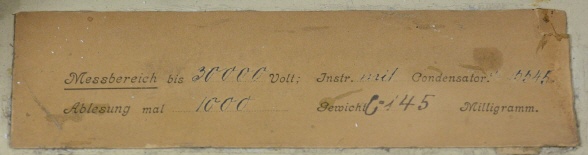 Messbereich bis 30000 Volt; Instr. mit Condensator: 5545.
Ablesung mal 1000 Gewicht G-145 Milligramm.